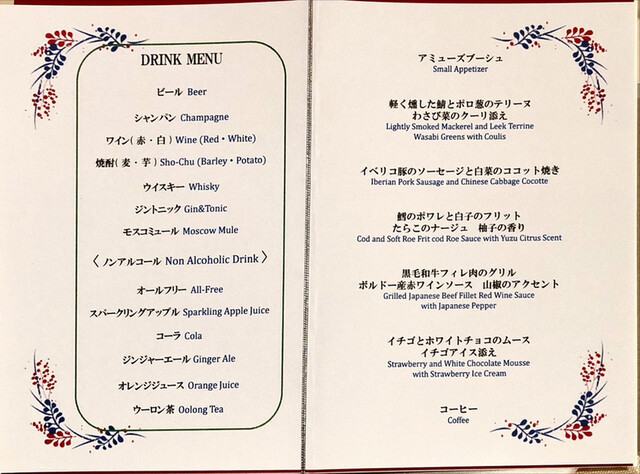 DRINK MENU
ビール Beer
シャンパン Champagne
ワイン(赤・白) Wine (Red・White)
焼酎(麦・芋) Sho-Chu (Barley・Potato)
ウイスキー Whisky
ジントニック Gin&Tonic
モスコミュール Moscow Mule
〈 ノンアルコール Non Alcoholic Drink 〉
オールフリー All-Free
スパークリングアップル Sparkling Apple Juice
コーラ Cola
ジンジャーエール Ginger Ale
オレンジジュース Orange Juice
ウーロン茶 Oolong Tea
アミューズブーシュ
Small Appetizer
軽く燻した鯖とポロ葱のテリーヌ
わさび菜のクーリ添え
Lightly Smoked Mackerel and Leek Terrine
Wasabi Greens with Coulis
イベリコ豚のソーセージと白菜のココット焼き
Iberian Pork Sausage and Chinese Cabbage Cocotte
鱈のポワレと白子のフリット
たらこのナージュ 柚子の香り
Cod and Soft Roe Frit cod Roe Sauce with Yuzu Citrus Scent
黒毛和牛フィレ肉のグリル
ボルドー産赤ワインソース 山椒のアクセント
Grilled Japanese Beef Fillet Red Wine Sauce
with Japanese Pepper
イチゴとホワイトチョコのムース
イチゴアイス添え
Strawberry and White Chocolate Mousse
with Strawberry Ice Cream
コーヒー
Coffee